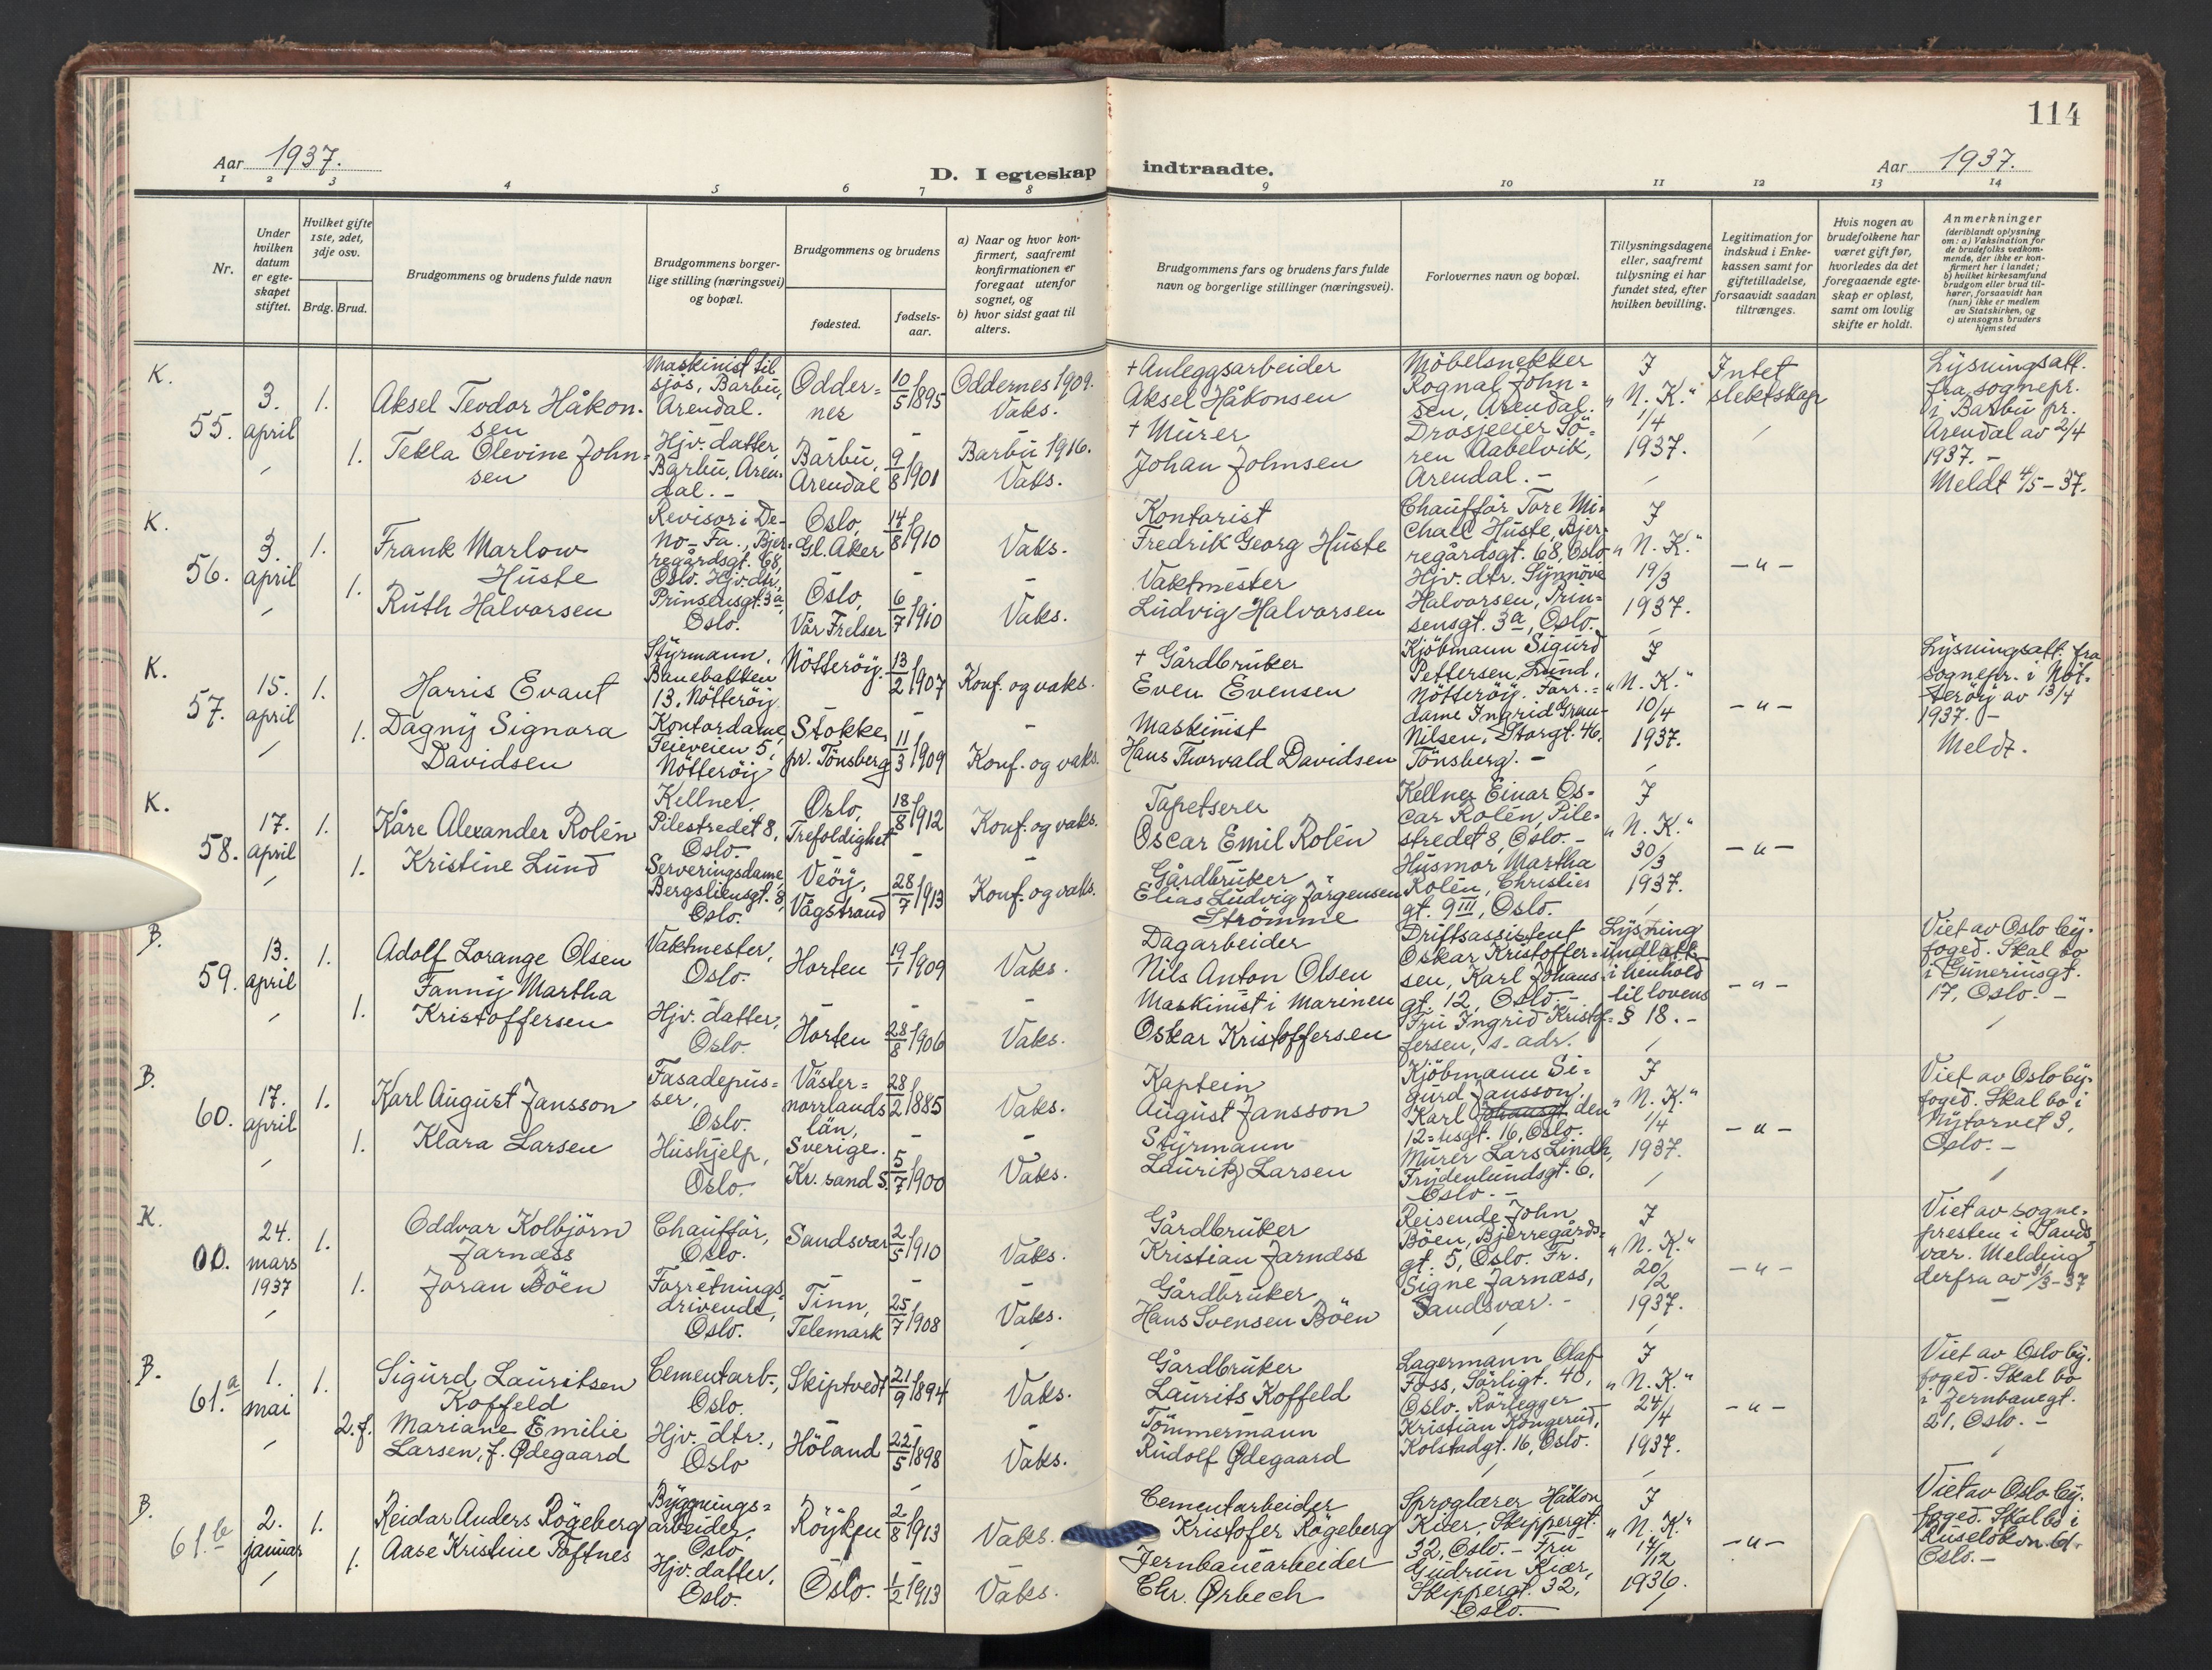 114
Aar 1937.
D. I egteskap indtraadte.
Aar 1937.
1 2 3 4 5 6 7 8 9 10 11 12 13 14
Nr.
Under hvilken datum er egte-skapet stiftet.
Hvilket gifte 1ste, 2det, 3dje osv.
Brdg. Brud.
Brudgommens og brudens fulde navn
Brudgommens borger-lige stilling (næringsvei) og bopæl.
Brudgommens og brudens
fødested.
fødsels-aar.
a) Naar og hvor kon-firmert, saafremt konfirmationen er foregaat utenfor sognet, og
b) hvor sidst gaat til alters.
Brudgommens fars og brudens fars fulde navn og borgerlige stillinger (næringsvei).
Forlovernes navn og bopæl.
Tillysningsdagene eller, saafremt tillysning ei har fundet sted, efter hvilken bevilling.
Legitimation for indskud i Enke-kassen samt for giftetilladelse, forsaavidt saadan tiltrænges.
Hvis nogen av brudefolkene har været gift før, hvorledes da det foregaaende egte-skap er opløst, samt om lovlig skifte er holdt.
Anmerkninger
(deriblandt oplysning om: a) Vaksination for de brudefolks vedkom-mende, der ikke er kon-firmert her i landet;
b) hvilket kirkesamfund brudgom eller brud til-hører, forsaavidt han (hun) ikke er medlem av Statskirken, og
c) utensogns bruders hjemsted
K.
55.
3. april
1.
Aksel Teodor Håkon-sen
Maskinist til sjös, Barbu, Arendal.
Odder=ner
10/5 1895
Oddernes 1909. Vaks.
+ Anleggsarbeider Aksel Håkonsen
Möbelsnekker Rognal John=sen, Arendal.
I "N. K." 1/4 1937.
Intet slektskap
Lysningsatt. fra sognepr. i Barbu pr. Arendal av 2/4 1937. - Meldt 4/5-37.
1.
Tekla Olevine John-sen
Hjv. datter, Barbu, Aren-dal. -
Barbu, Arendal
9/8 1901
Barbu 1916. Vaks.
+ Murer Johan Johnsen
Drosjeeier Sö=ren Aabelvik, Arendal. -
K.
56.
3. april
1.
Frank Marlow Huste
Revisor i De-No-Fa., Bjer-regårdsgt. 68, Oslo.
Oslo, Gl. Aker
14/8 1910
Vaks.
Kontorist Fredrik Georg Huste
Chaufför Tore Mi-chall Huste, Bjer-regårdsgt. 68, Oslo
I "N. K." 19/3 1937.
- " -
1.
Ruth Halvorsen
Hjv. dtr., Prinsensgt. 3a, Oslo.
Oslo, Vår Frelser
6/7 1910
Vaks.
Vaktmester Ludvig Halvorsen
Hjv. dtr. Synnöve Halvorsen, Prin=sensgt. 3a, Oslo.
K.
57.
15. april
1.
Harris Evant
Styrmann, Banebakken 13, Nötteröy.
Nötteröy.
13/2 1907
Konf. og vaks.
+ Gårdbruker Even Evensen
Kjöbmann Sigurd Pettersen, Lund, Nötteröy.
I "N. K." 10/4 1937.
- " -
Lysningsatt. fra sognepr. i Nöt-teröy av 13/4 1937. - Meldt.
1.
Dagny Signora Davidsen
Kontordame, Feieveien 5, Nötteröy
Stokke pr. Tönsberg
11/3 1909
Konf. og vaks.
Maskinist Hans Thorvald Davidsen
Forr.=dame Ingrid Grau-Nilsen, Storgt. 46, Tönsberg. -
K.
58.
17. april
1.
Kåre Alexander Rolén
Kellner, Pilestredet 8, Oslo.
Oslo, Trefoldighet
18/8 1912
Konf. og vaks.
Tapetserer Oscar Emil Rolén
Kellner Einar Os-car Rolén, Pile-stredet 8, Oslo. -
I "N. K." 30/3 1937.
- " -
1.
Kristine Lund
Serveringsdame, Bergsliensgt. 8, Oslo.
Veöy, Vågstrand
28/7 1913
Konf. og vaks.
Gårdbruker Elias Ludvig Jörgensen Strömme
Husmor Martha Rolén, Christies gt. 9 III, Oslo.
B.
59.
13. april
1.
Adolf Lorange Olsen
Vaktmester, Oslo.
Horten
19/1 1909
Vaks.
Dagarbeider Nils Anton Olsen
Driftsassistent Oskar Kristoffer=sen, Karl Johans-gt. 12, Oslo. -
Lysning undlatt i henhold til lovens § 18. -
- " -
Viet av Oslo by-foged. Skal bo i Gunerinsgt. 17, Oslo. -
1.
Fanny Martha Kristoffersen
Hjv. datter, Oslo.
Horten
28/8 1906
Vaks.
Maskinist i Marinen Oskar Kristoffersen
Fru Ingrid Kristof=fersen, s. adr.
B.
60.
17. april
1.
Karl August Jansson
Fasadepus=ser, Oslo.
Väster=norrlands län, Sverige.
28/2 1885
Vaks.
Kaptein August Jansson
Kjöbmann Si=gurd Jansson, Karl den 12=tesgt. 16, Oslo.
I "N. K." 1/4 1937.
- " -
Viet av Oslo by-foged. Skal bo i Nytorvet 3, Oslo. -
1.
Klara Larsen
Hushjelp, Oslo.
Kr. sand S.
5/7 1900
Vaks.
Styrmann Lauritz Larsen
Murer Lars Lindh, Frydenlundsgt. 6, Oslo. -
K.
00.
24. mars 1937
1.
Oddvar Kolbjörn Jarnæss
Chaufför, Oslo.
Sandsvær
2/5 1910
Vaks.
Gårdbruker Kristian Jarnæss
Reisende John Böen, Bjerregårds-gt. 5, Oslo.
I "N. K." 20/2 1937.
- " -
Viet av sogne-presten i Sands-vær. Melding derfra av 31/3-37
1.
Joran Böen
Forretnings-drivende, Oslo.
Tinn, Telemark
25/7 1908
Vaks.
Gårdbruker Hans Svensen Böen
Fr. Signe Jarnæss, Sandsvær. -
B.
61.a
1. mai
1.
Sigurd Lauritsen Koffeld
Cementarb., Oslo.
Skiptvedt
21/9 1894
Vaks.
Gårdbruker Laurits Koffeld
Lagermann Olaf Foss, Sörligt. 40, Oslo.
I "N. K." 24/4 1937.
- " -
Viet av Oslo by-foged. Skal bo i Jernbanegt. 21, Oslo. -
2. f.
Mariane Emilie Larsen, f. Ødegaard
Hjv. dtr., Oslo
Höland
22/5 1898
Vaks.
Tömmermann Rudolf Ødegaard
Rörlegger Kristian Kongerud, Kolstadgt. 16, Oslo.
B.
61.b
2. januar
1.
Reidar Anders Rögeberg
Bygnings=arbeider, Oslo
Röyken
2/8 1913
Vaks.
Cementarbeider Kristofer Rögeberg
Sproglærer Håkon Kiær, Skippergt. 32, Oslo. -
I "N. K." 17/12 1936.
- " -
Viet av Oslo by-foged. Skal bo i Oslo. -
1.
Aase Kristine Toftnes
Hjv. datter, Oslo.
Oslo.
1/2 1913
Vaks.
Jernbanearbeider Chr. Ørbech
Fru Gudrun Kiær, Skippergt. 32, Oslo.